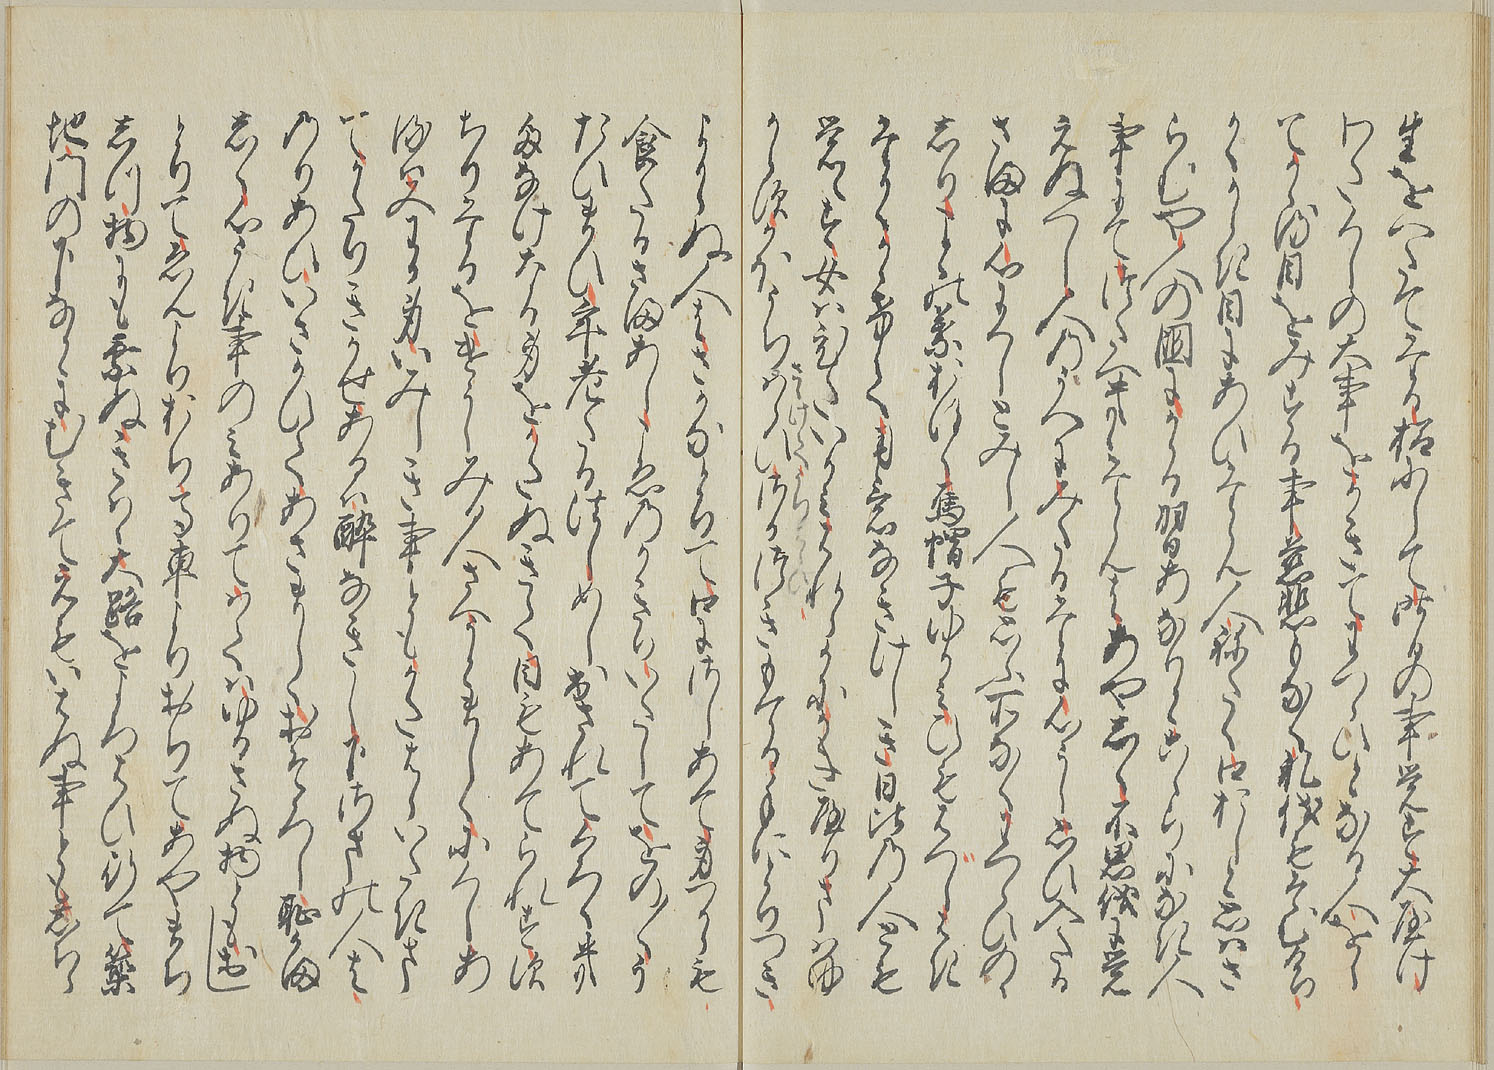 生をへたてたる様にして昨日の事覚えす大屋け
わたくしの大事をかきてわつらひとなる人をし
てかゝる目をみする事慈悲もなく礼儀もそむけり
かくからき目にあひたらん人ねたく口おしと思はさ
らむや人の国にかゝる習あなりとこれらになき人
事にてつたへきゝたらんはあやしく不思儀に覚
えぬへし人のうへにてみたるたに心うし思ひ入たる
さまに心にくしとみし人も思ふ所なくわらひのゝ
しりことの葉おほく烏帽子ゆかみひもはつしはき
たかくかゝけて用意なきけしき日比の人とも
覚えす女はひたいかみはれらかにかきやりまはゆ
からすかほうちさけてうちわらひさか月もてる手にとりつき
よからぬ人はさかなとりて口にさしあて身つからも
食たるさまあしこゑのかきりいたしてをの〳〵う
たひまひ年老たる法しめし出されてくろくき
たなけなる身をかたぬきて目もあてられすす
ちりたるをけうしみる人さへうとましくにくしあ
るは又わか身いみしき事ともかたはらいたき
いひきかせあるは酔なきし下さまの人は
のりあひいさかひてあさましくおそろし恥かま
しく心うき事のみありてはてはゆるさぬ物ともおし
とりてえんよりおち馬車よりおちてあやまち
しつ物にも乗ぬきはゝ大路をよろほひ行て築
地門の下なとにむきてえもいはぬ事ともしちら